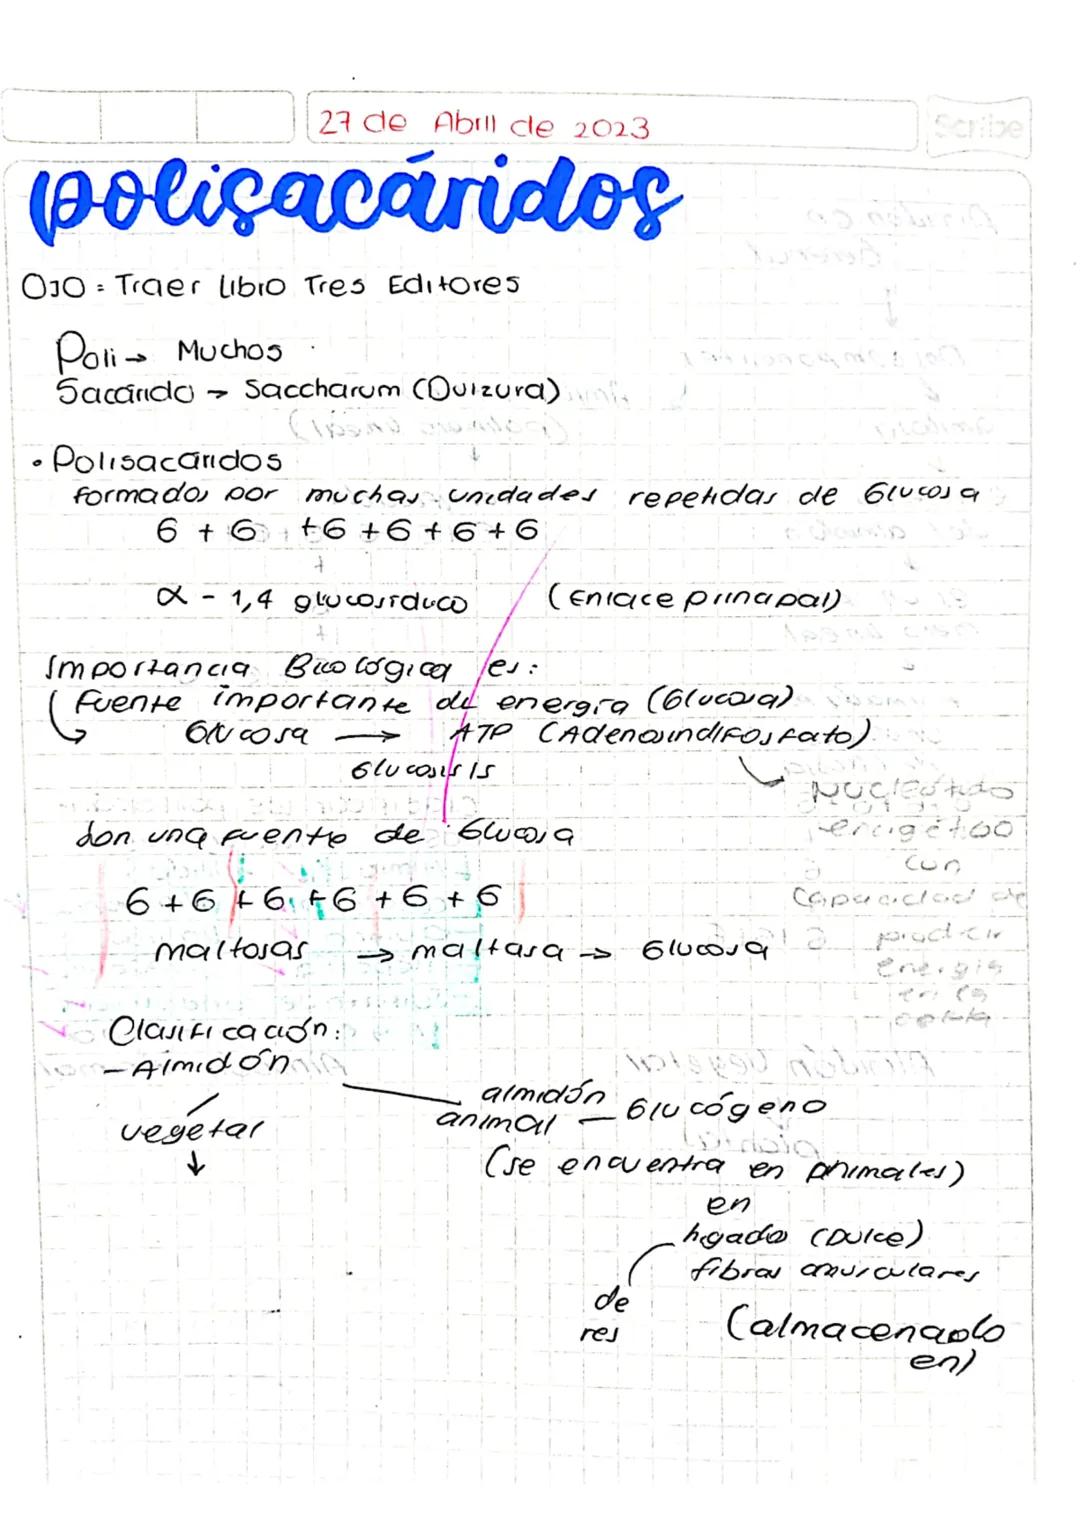 27 de Abril de 2023
Scribe
polisacáridos
OJO: Traer Libro Tres Editores
Poli → Muchos
Sacárido → Saccharum (Duizura)
• Polisacáridos
formados por muchas unidades repetidas de Glucosa
6 + 6 + 6 + 6 + 6 + 6
α - 1,4 glucosiduco (Enlace principal)
Importancia Biológica es:
Fuente importante de energía (Glucosa)
Glucosa → ATP (Adenosindifosfato)
Glucosisis
Son una fuente de Glucosa
Nucleótido
energético
con
capacidad de
producir
energía
en la
6 + 6 + 6 + 6 + 6 + 6
maltosas → maltasa → Glucosa
Clasificación:
- Almidón
vegetal
↓
almidón
animal — Glucógeno
(se encuentra en animales)
en
hígado (Dulce)
fibras musculares
de
res
(almacenado
en)